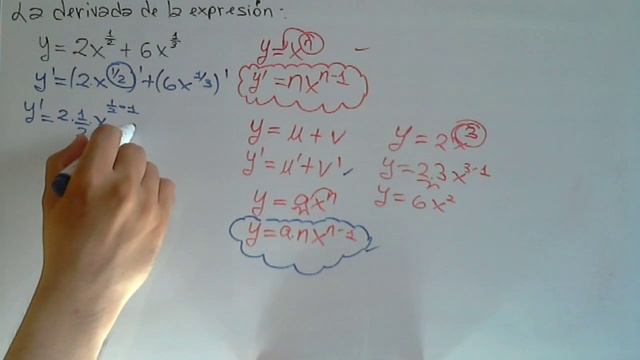 La derivada de la expresión:
y = 2x^{1/2} + 6x^{1/3}
y' = (2·x^{1/2})' + (6x^{1/3})'
y' = 2·1/2·x^{1/2-1}
y = x^n
y' = nx^{n-1}
y = u + v
y' = u' + v'
y = ax^n
y = a·nx^{n-1}
y = 2x^3
y = 2·3x^{3-1}
y = 6x^2